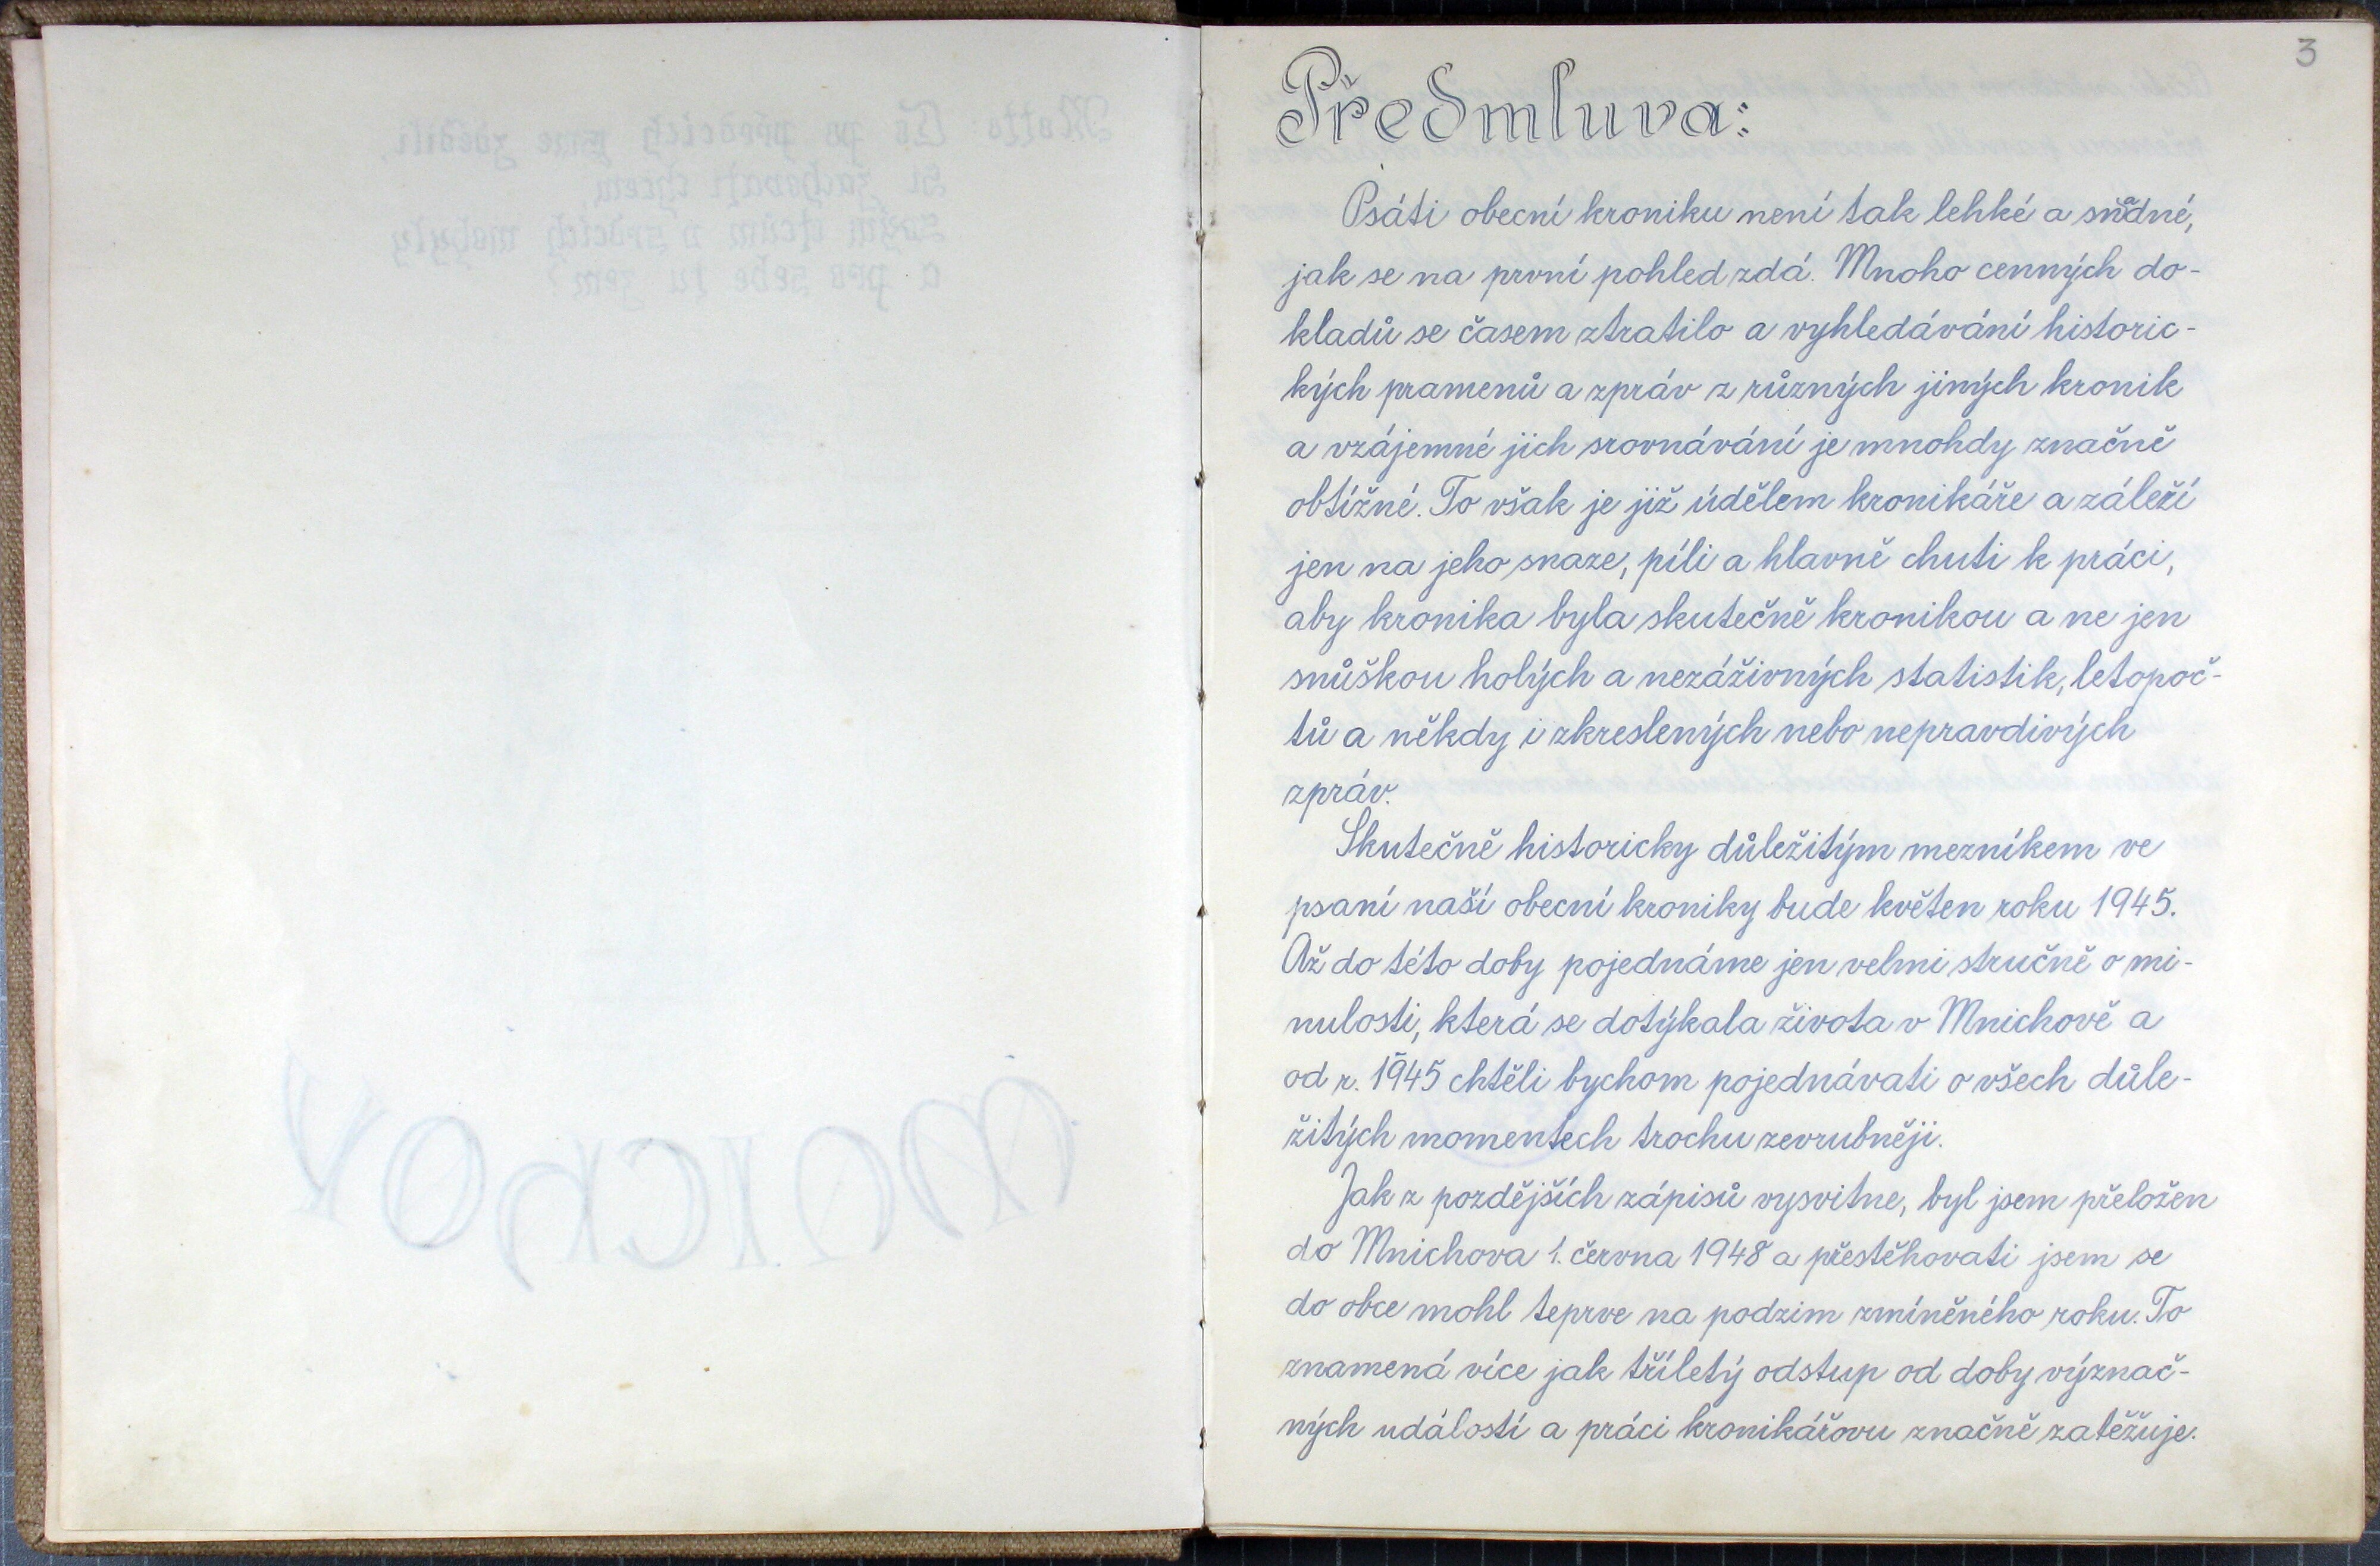 3
Předmluva:
Psáti obecní kroniku není tak lehké a snadné,
jak se na první pohled zdá. Mnoho cenných do-
kladů se časem ztratilo a vyhledávání historic-
kých pramenů a zpráv z různých jiných kronik
a vzájemné jich srovnávání je mnohdy značně
obtížné. To však je již údělem kronikáře a záleží
jen na jeho snaze, píli a hlavně chuti k práci,
aby kronika byla skutečně kronikou a ne jen
snůškou holých a nezáživných statistik, letopoč-
tů a někdy i zkreslených nebo nepravdivých
zpráv.
Skutečně historicky důležitým mezníkem ve
psaní naší obecní kroniky bude květen roku 1945.
Až do této doby pojednáme jen velmi stručně o mi-
nulosti, která se dotýkala života v Mnichově a
od r. 1945 chtěli bychom pojednávati o všech důle-
žitých momentech trochu zevrubněji.
Jak z pozdějších zápisů vysvitne, byl jsem přeložen
do Mnichova 1. června 1948 a přestěhovati jsem se
do obce mohl teprve na podzim zmíněného roku. To
znamená více jak tříletý odstup od doby význač-
ných událostí a práci kronikářovu značně zatěžuje.